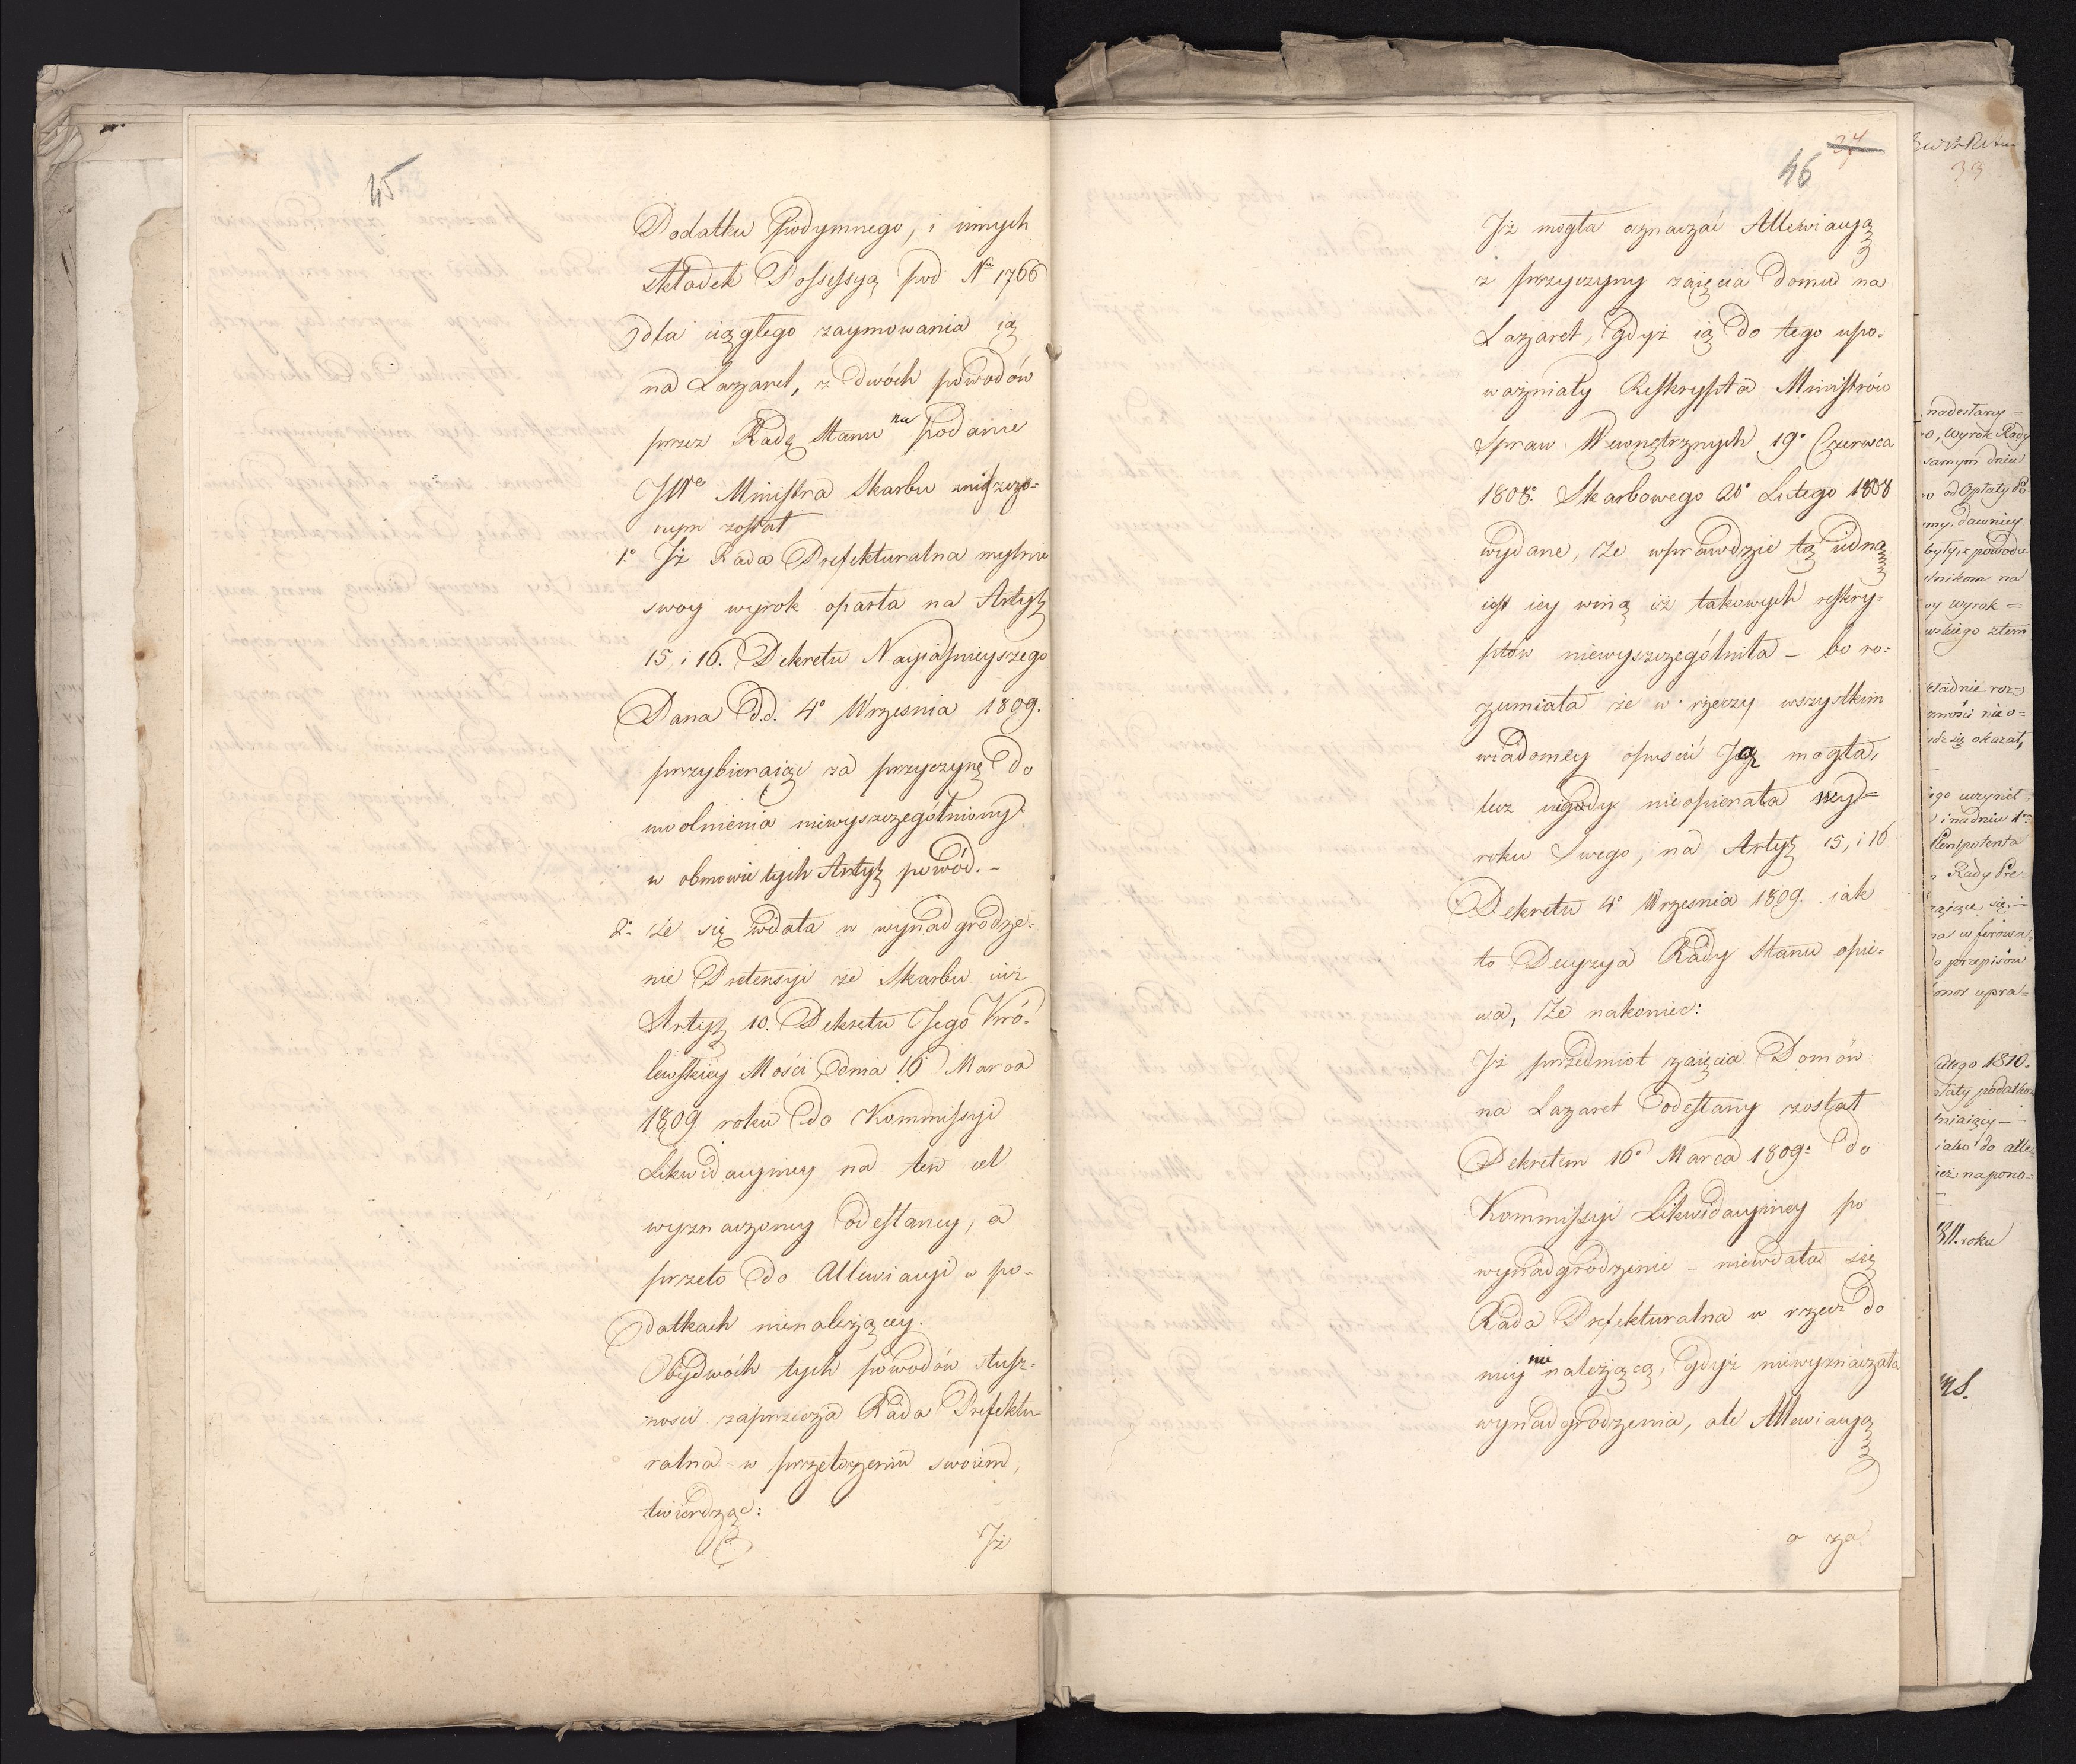 45
Dodatku Podymnego, i innych
składek Possessyą pod Nº 1766
dla ciągłego zaymowania ią
na Lazaret, z dwóch powodów
przez Radę Stanu na podanie
JWº Ministra Skarbu zniszczo=
nym został
1º Iż Rada Prefekturalna mylnie
swoy wyrok oparła na Arty:
15 i 16. Dekretu Nayiaśnieyszego
Pana d.d. 4º Września 1809.
przybieraiąc za przyczynę do
uwolnienia niewyszczególniony
w obmowie tych Arty: powód. -
2º że się wdała w wynadgrodze=
nie Pretensyi że Skarbu iuż
Arty: 10. Dekretu Jego Kró=
lewskiey Mości dnia 16 Marca
1809 roku do Kommissyi
Likwidacyiney na ten cel
wyznaczoney odesłaney, a
przeto do Allewiacyi w po-
datkach nienależącey.
Obydwóch tych powodów słusz-
ności zaprzecza Rada Prefektu-
ralna w przełożeniu swoiem,
twierdząc:
Iż
46
37
Iż mogła oznaczać Allewiacyą
z przyczyny zaięcia domu na
Lazaret, gdyż ią do tego upo-
ważniały Reskrypta Ministrów
Spraw Wewnętrznych 19º Czerwca
1808º Skarbowego 20º Lutego 1808
wydane, że wprawdzie tą iedną
iest iey winą iż takowych reskry=
ptów niewyszczególniła - bo ro=
zumiała że w rzeczy wszystkim
wiadomey opuścić Ją mogła,
lecz nigdy nieopierała wy=
roku Swego, na Arty: 15, i 16
Dekretu 4º Września 1809. iak
to Decyzya Rady Stanu opie=
wa, że nakoniec:
Iż przedmiot zaięcia Domów
na Lazaret odesłany został
Dekretem 16º Marca 1809º do
Kommissyi Likwidacyiney po
wynadgrodzenie - niewdała się
Rada Prefekturalna w rzecz do
niey nie należącą, gdyż niewyznaczała
wynadgrodzenia, ale Allewiacyą
a za
33
nadesłany =
o, Wyrok Rady
samym dniu
o od Opłaty Po
my, dawniey
były, z powodu
lnikom na
y wyrok =
wskiego ztem
kładnie roz=
zności nie o=
dz się okazał,
ego uczynił =
i na dniu 1º
Plenipotenta
Rady Pre=
raiące się
na w ferowa=
o przepisów
onor upra=
utego 1810.
płaty podatkow
niaiący -
iako do alle=
ież na pono=
1811. roku
mS.